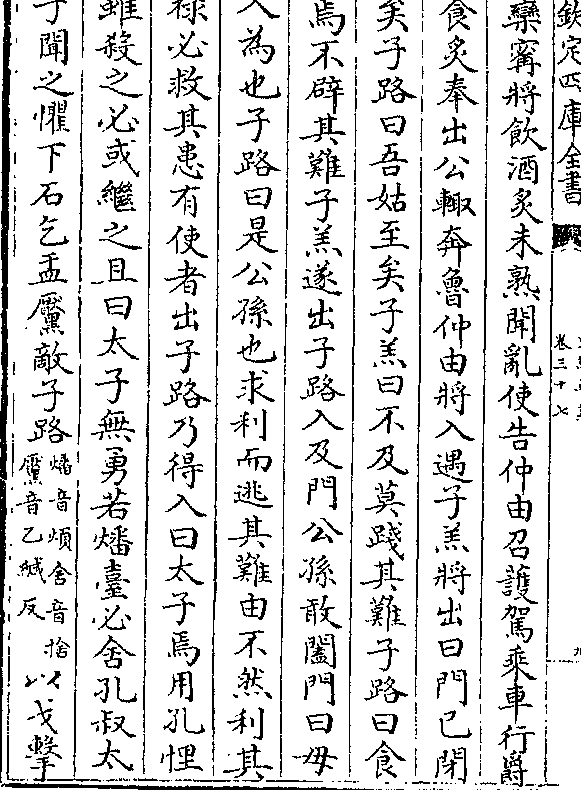 欽定四庫全書
卷三十七
九
欒寗將飲酒炙未熟聞亂使告仲由召護駕乘車行爵
食炙奉出公輙奔魯仲由將入遇子羔將出曰門已閉
矣子路曰吾姑至矣子羔曰不及莫踐其難子路曰食
焉不辟其難子羔遂出子路入及門公孫敢闔門曰毋
入為也子路曰是公孫也求利而逃其難由不然利其
禄必救其患有使者出子路乃得入曰太子焉用孔悝
雖殺之必或繼之且曰太子無勇若燔臺必舍孔叔太
子聞之懼下石乞盂黶敵子路燔音煩舍音捨黶音乙緘反以戈擊